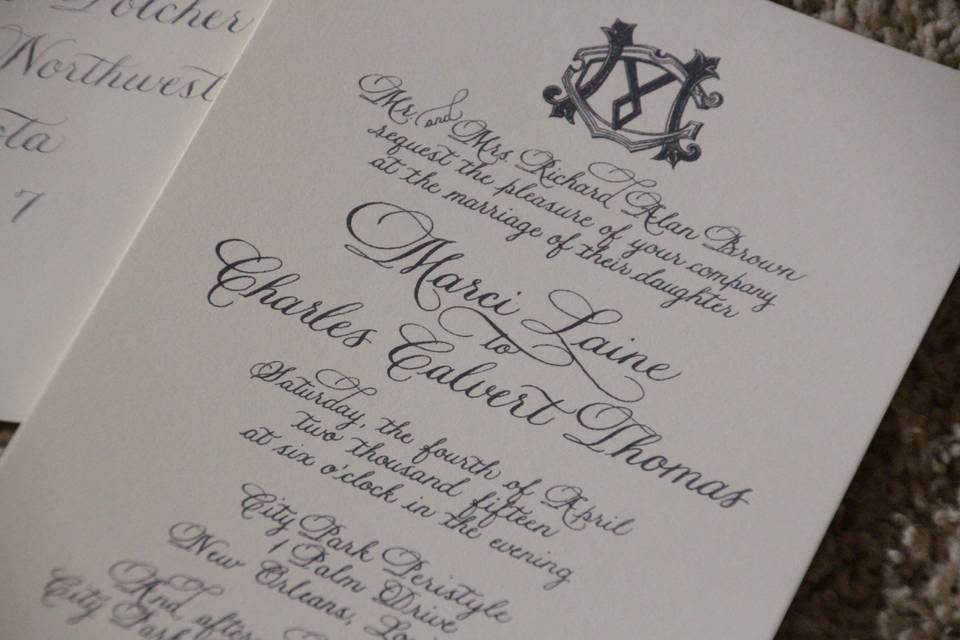 Northwest
7
Mr. and Mrs. Richard Alan Brown
request the pleasure of your company
at the marriage of their daughter
Marci Laine
to
Charles Calvert Thomas
Saturday, the fourth of April
two thousand fifteen
at six o'clock in the evening
City Park Peristyle
1 Palm Drive
New Orleans, Lou
And after
City Park